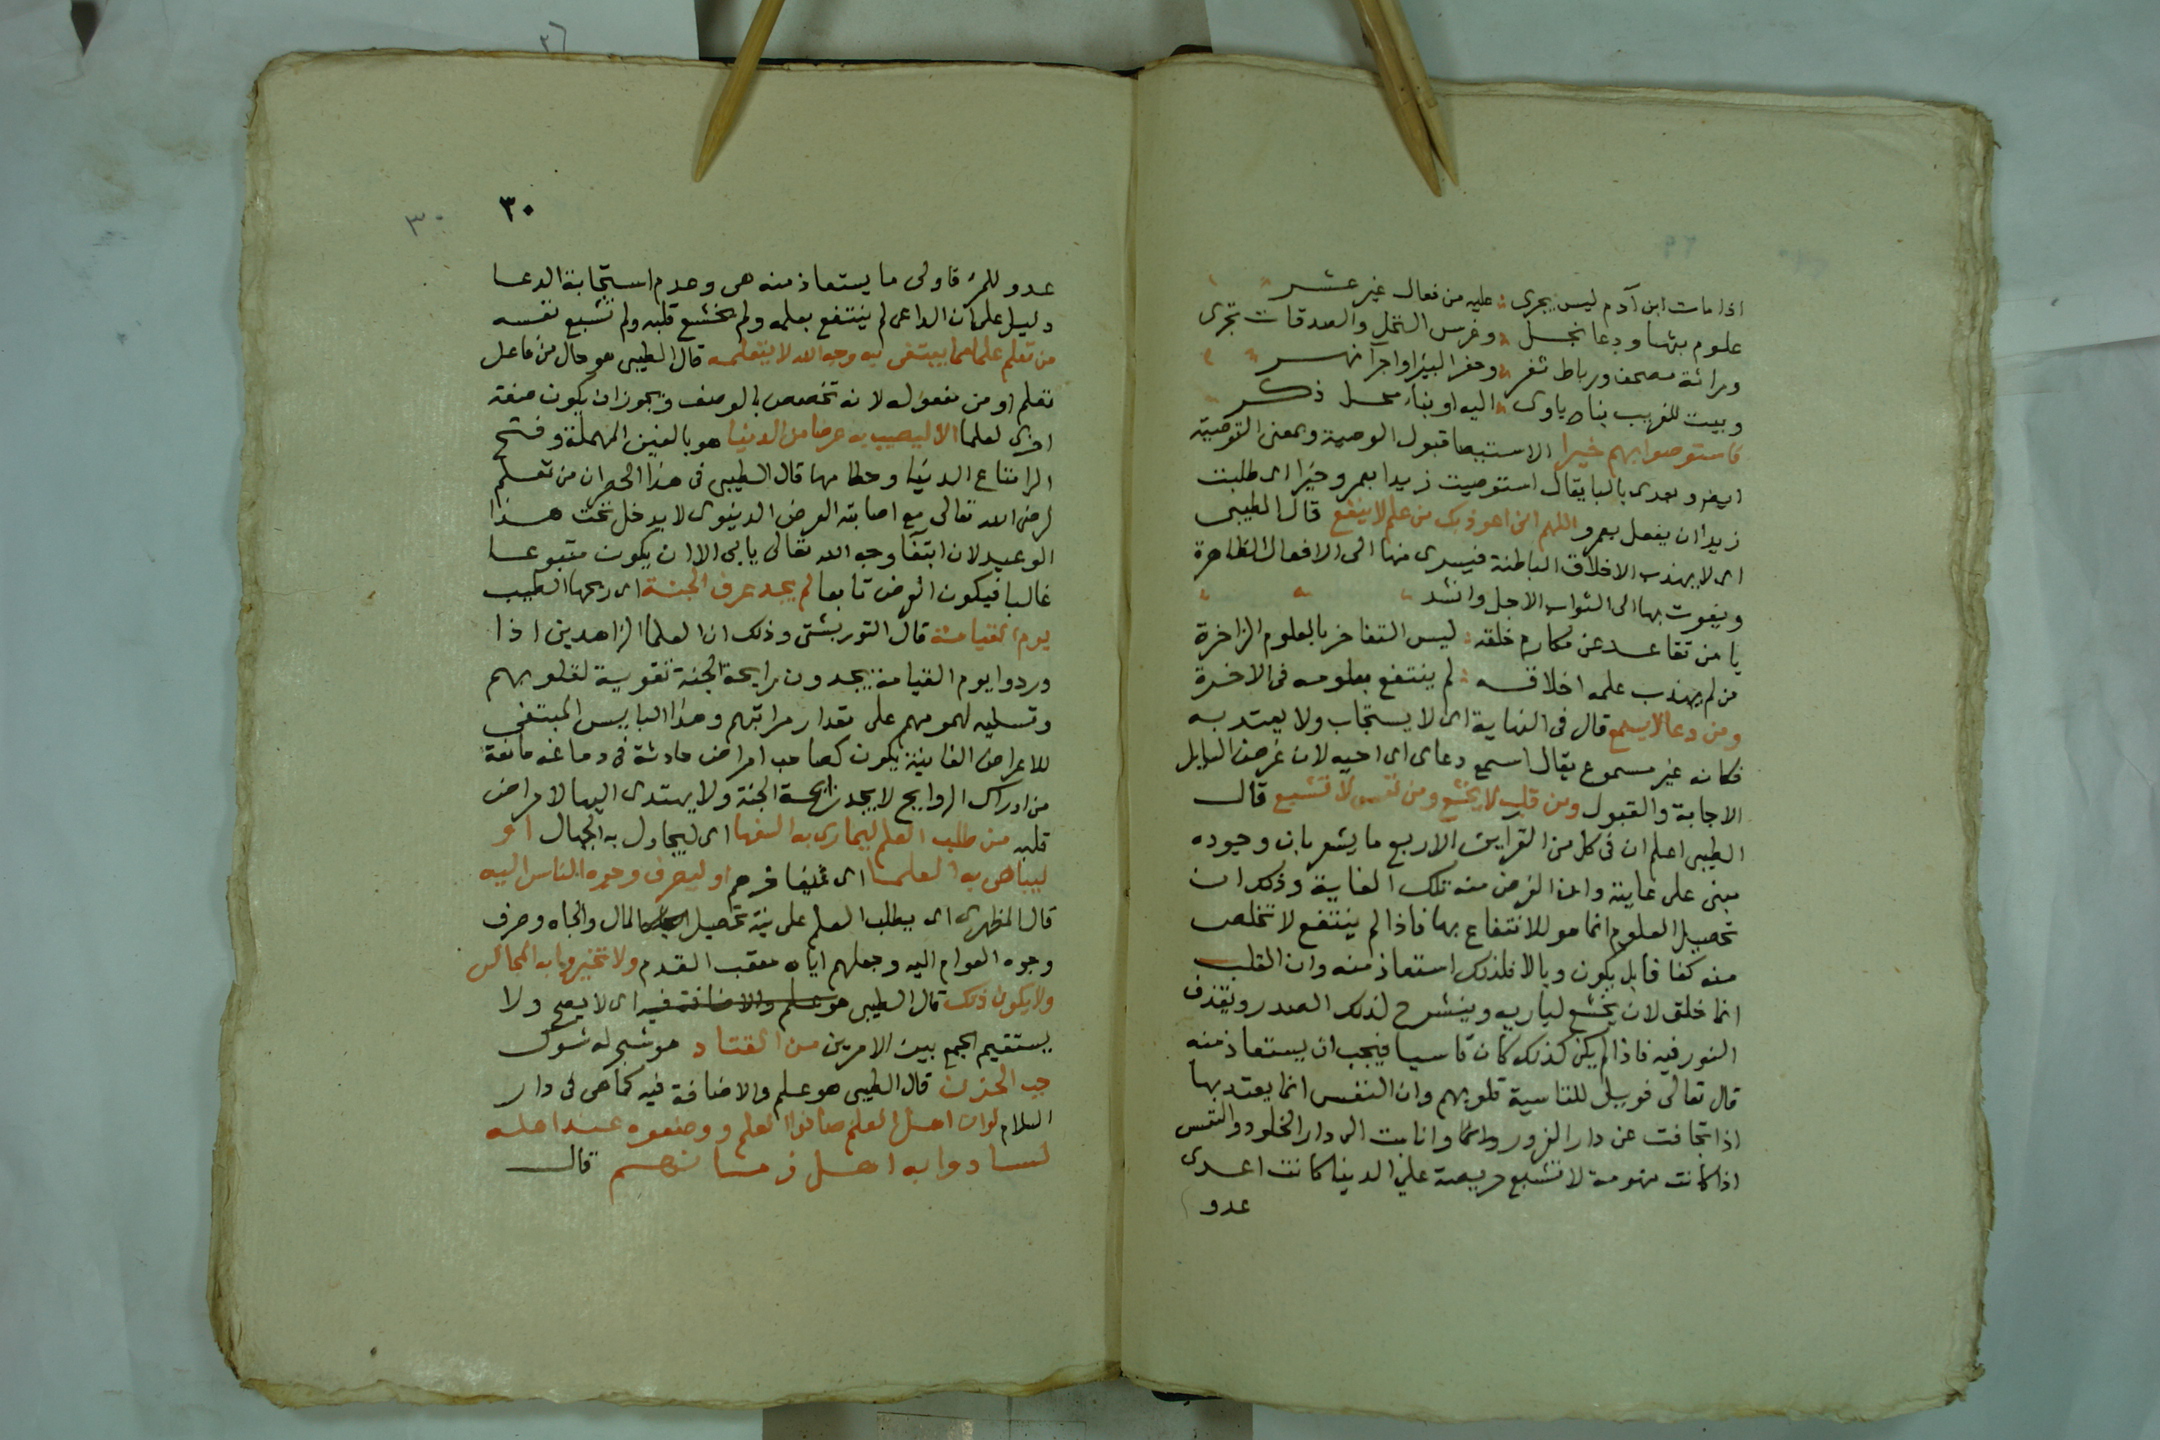 اذا مات ابن آدم ليس يجرى : عليه من فعال غير عشر
علوم بثها ودعا نجل : وغرس النخل والصدقات تجرى
وراثة مصحف ورباط ثغر : وحفر البير او اجرآ نهر
وبيت للغريب بناه ياوى : اليه او بناء محل ذكر
فاستوصوا بهم خيرا الاستيصا قبول الوصية وبمعنى التوصية
ايضا ويعدى بالبا يقال استوصيت زيدا بعمرو خيرا اى طلبت
زيدا ان يفعل بعمرو اللهم انى اعوذ بك من علم لا ينفع قال الطيبى
اى لا يهذب الاخلاق الباطنة فيسرى منها الى الافعال الظاهرة
ويفوت بها الى الثواب الاجل وانشد
يا من تقاعد عن مكارم خلقه : ليس التفاخر بالعلوم الزاخرة
من لم يهذب علمه اخلاقه : لم ينتفع بعلومه فى الاخرة
ومن دعا لا يسمع قال فى النهاية اى لا يستجاب ولا يعتد به
فكانه غير مسموع يقال اسمع دعاى اى اجبه لان غرض السايل
الاجابة والقبول ومن قلب لا يخشع ومن نفس لا تشبع قال
الطيبى اعلم ان فى كل من القراين الاربع ما يشعر بان وجوده
مبنى على غايته وان الغرض منه تلك الغاية وذلك ان
تحصيل العلوم انما هو للانتفاع بها فاذا لم ينتفع لا تخلص
منه كفافا بل يكون وبالا فلذلك استعاذ منه وان القلب
انما خلق لان يخشع لباريه وينشرح لذلك الصدر ويقذف
النور فيه فاذا لم يكن كذلك كان قاسيا فيجب ان يستعاذ منه
قال تعالى فويل للقاسية قلوبهم وان النفس انما يعتد بها
اذا تجافت عن دار الغرور وانابت الى دار الخلود والنفس
اذا كانت منهومة لا تشبع حريصة على الدنيا كانت اعدى
عدو
٣٠
٣٠
عدو للمرء فاولى ما يستعاذ منه هى وعدم استجابة الدعا
دليل على ان الداعى لم ينتفع بعلمه ولم يخشع قلبه ولم تشبع نفسه
من تعلم علما مما يبتغى به وجه الله لا يتعلمه قال الطيبى هو حال من فاعل
تعلم او من مفعوله لانه تخصص بالوصف ويجوز ان يكون صفة
اخرى لعلما الا ليصيب به عرضا من الدنيا هو بالعين المهملة وفتح
الرا متاع الدنيا وحطامها قال الطيبى فى هذا الحصر ان من تعلم
لرضى الله تعالى مع اصابته العرض الدنيوى لا يدخل تحت هذا
الوعيد لان ابتغآ وجه الله تعالى يابى الا ان يكون متبوعا
غالبا فيكون العرض تابعا لم يجد عرف الجنة اى ريحها الطيب
يوم القيامة قال التوربشتى وذلك ان العلما الزاهدين اذا
وردوا يوم القيامة يجدون رايحة الجنة تقوية لقلوبهم
وتسلية لهمومهم على مقدار مراتبهم وهذا البايس المبتغى
للاعراض الفانية يكون كصاحب امراض حادثة فى دماغه مانعة
من ادراك الروايح لا يجد رايحة الجنة ولا يهتدى اليها لامراض
قلبه من طلب العلم ليمارى به السفها اى ليجادل به الجهال او
ليباهى به العلما اى يفاخرهم او ليصرف وجوه الناس اليه
قال المظهرى اى يطلب العلم على نية تحصيل المال والجاه وصرف
وجوه العوام اليه وجعلهم اياه معقب القدم ولا تخيروا به المجالس
ولا يكون ذلك قال الطيبى هو علم والاضافة فيه اى لا يصح ولا
يستقيم الجمع بين الامرين من القتاد هو شجر له شوك
جب الحزن قال الطيبى هو علم والاضافة فيه كما هى فى دار
السلام لو ان اهل العلم صانوا العلم ووضعوه عند اهله
لسادوا به اهل زمانهم قال